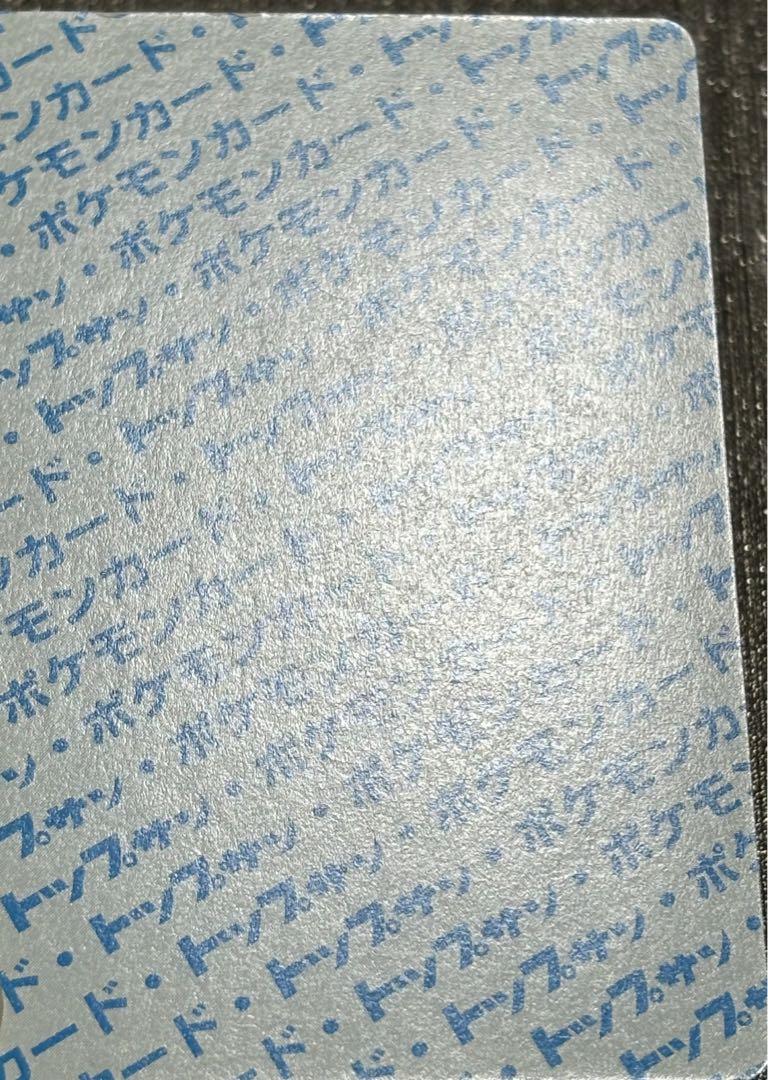 カード・
ンカード・
ケモンカード・ト
・ポケモンカード・トップ
サン・ポケモンカード・トップサ
ップサン・ポケモンカード・トップサ
・トップサン・ポケモンカード・トッ
ード・トップサン・ポケモンカード・
ンカード・トップサン・ポケモンカー
モンカード・トップサン・ポケモン
ポケモンカード・トップサン・ポケモ
ン・ポケモンカード・トップサン・ポ
プサン・ポケモンカード・トップサン
トップサン・ポケモンカード・トップ
ド・トップサン・ポケモンカード・ト
カード・トップサン・ポケモンカード
ード・トップサン・ポケモンカ
ド・トップサン・ポケモ
・トップサン・ポケ
トップサン・
トップサ